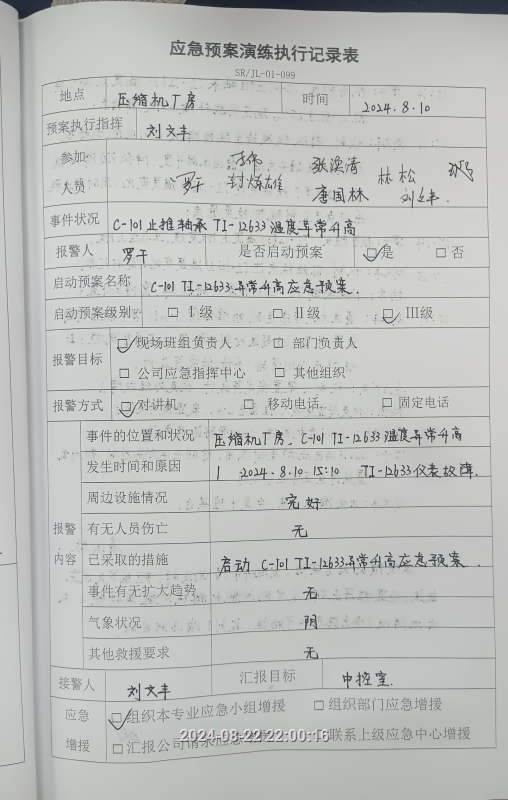 应急预案演练执行记录表
SR/JL-01-099
地点 压缩机厂房 时间 2024.8.10
预案执行指挥 刘文丰
参加人员 罗干 封炼雄 张溪涛 唐国林 林松 刘文丰
事件状况 C-101止推轴承 TI-12633温度异常升高
报警人 罗干 是否启动预案 ☑是 □否
启动预案名称 C-101 TI-12633异常升高应急预案.
启动预案级别 □ I级 □ II级 ☑ III级
报警目标 ☑现场班组负责人 □ 部门负责人
□ 公司应急指挥中心 □ 其他组织
报警方式 ☑对讲机 □ 移动电话 □ 固定电话
报警内容
事件的位置和状况 压缩机厂房, C-101 TI-12633温度异常升高
发生时间和原因 1 2024.8.10 15:10 TI-12633仪表故障.
周边设施情况 完好
有无人员伤亡 无
已采取的措施 启动 C-101 TI-12633异常升高应急预案.
事件有无扩大趋势 无
气象状况 阴
其他救援要求 无
接警人 刘文丰 汇报目标 中控室.
应急增援 ☑组织本专业应急小组增援 □组织部门应急增援
□汇报公司请求应急 联系上级应急中心增援
2024-08-22 22:00:16